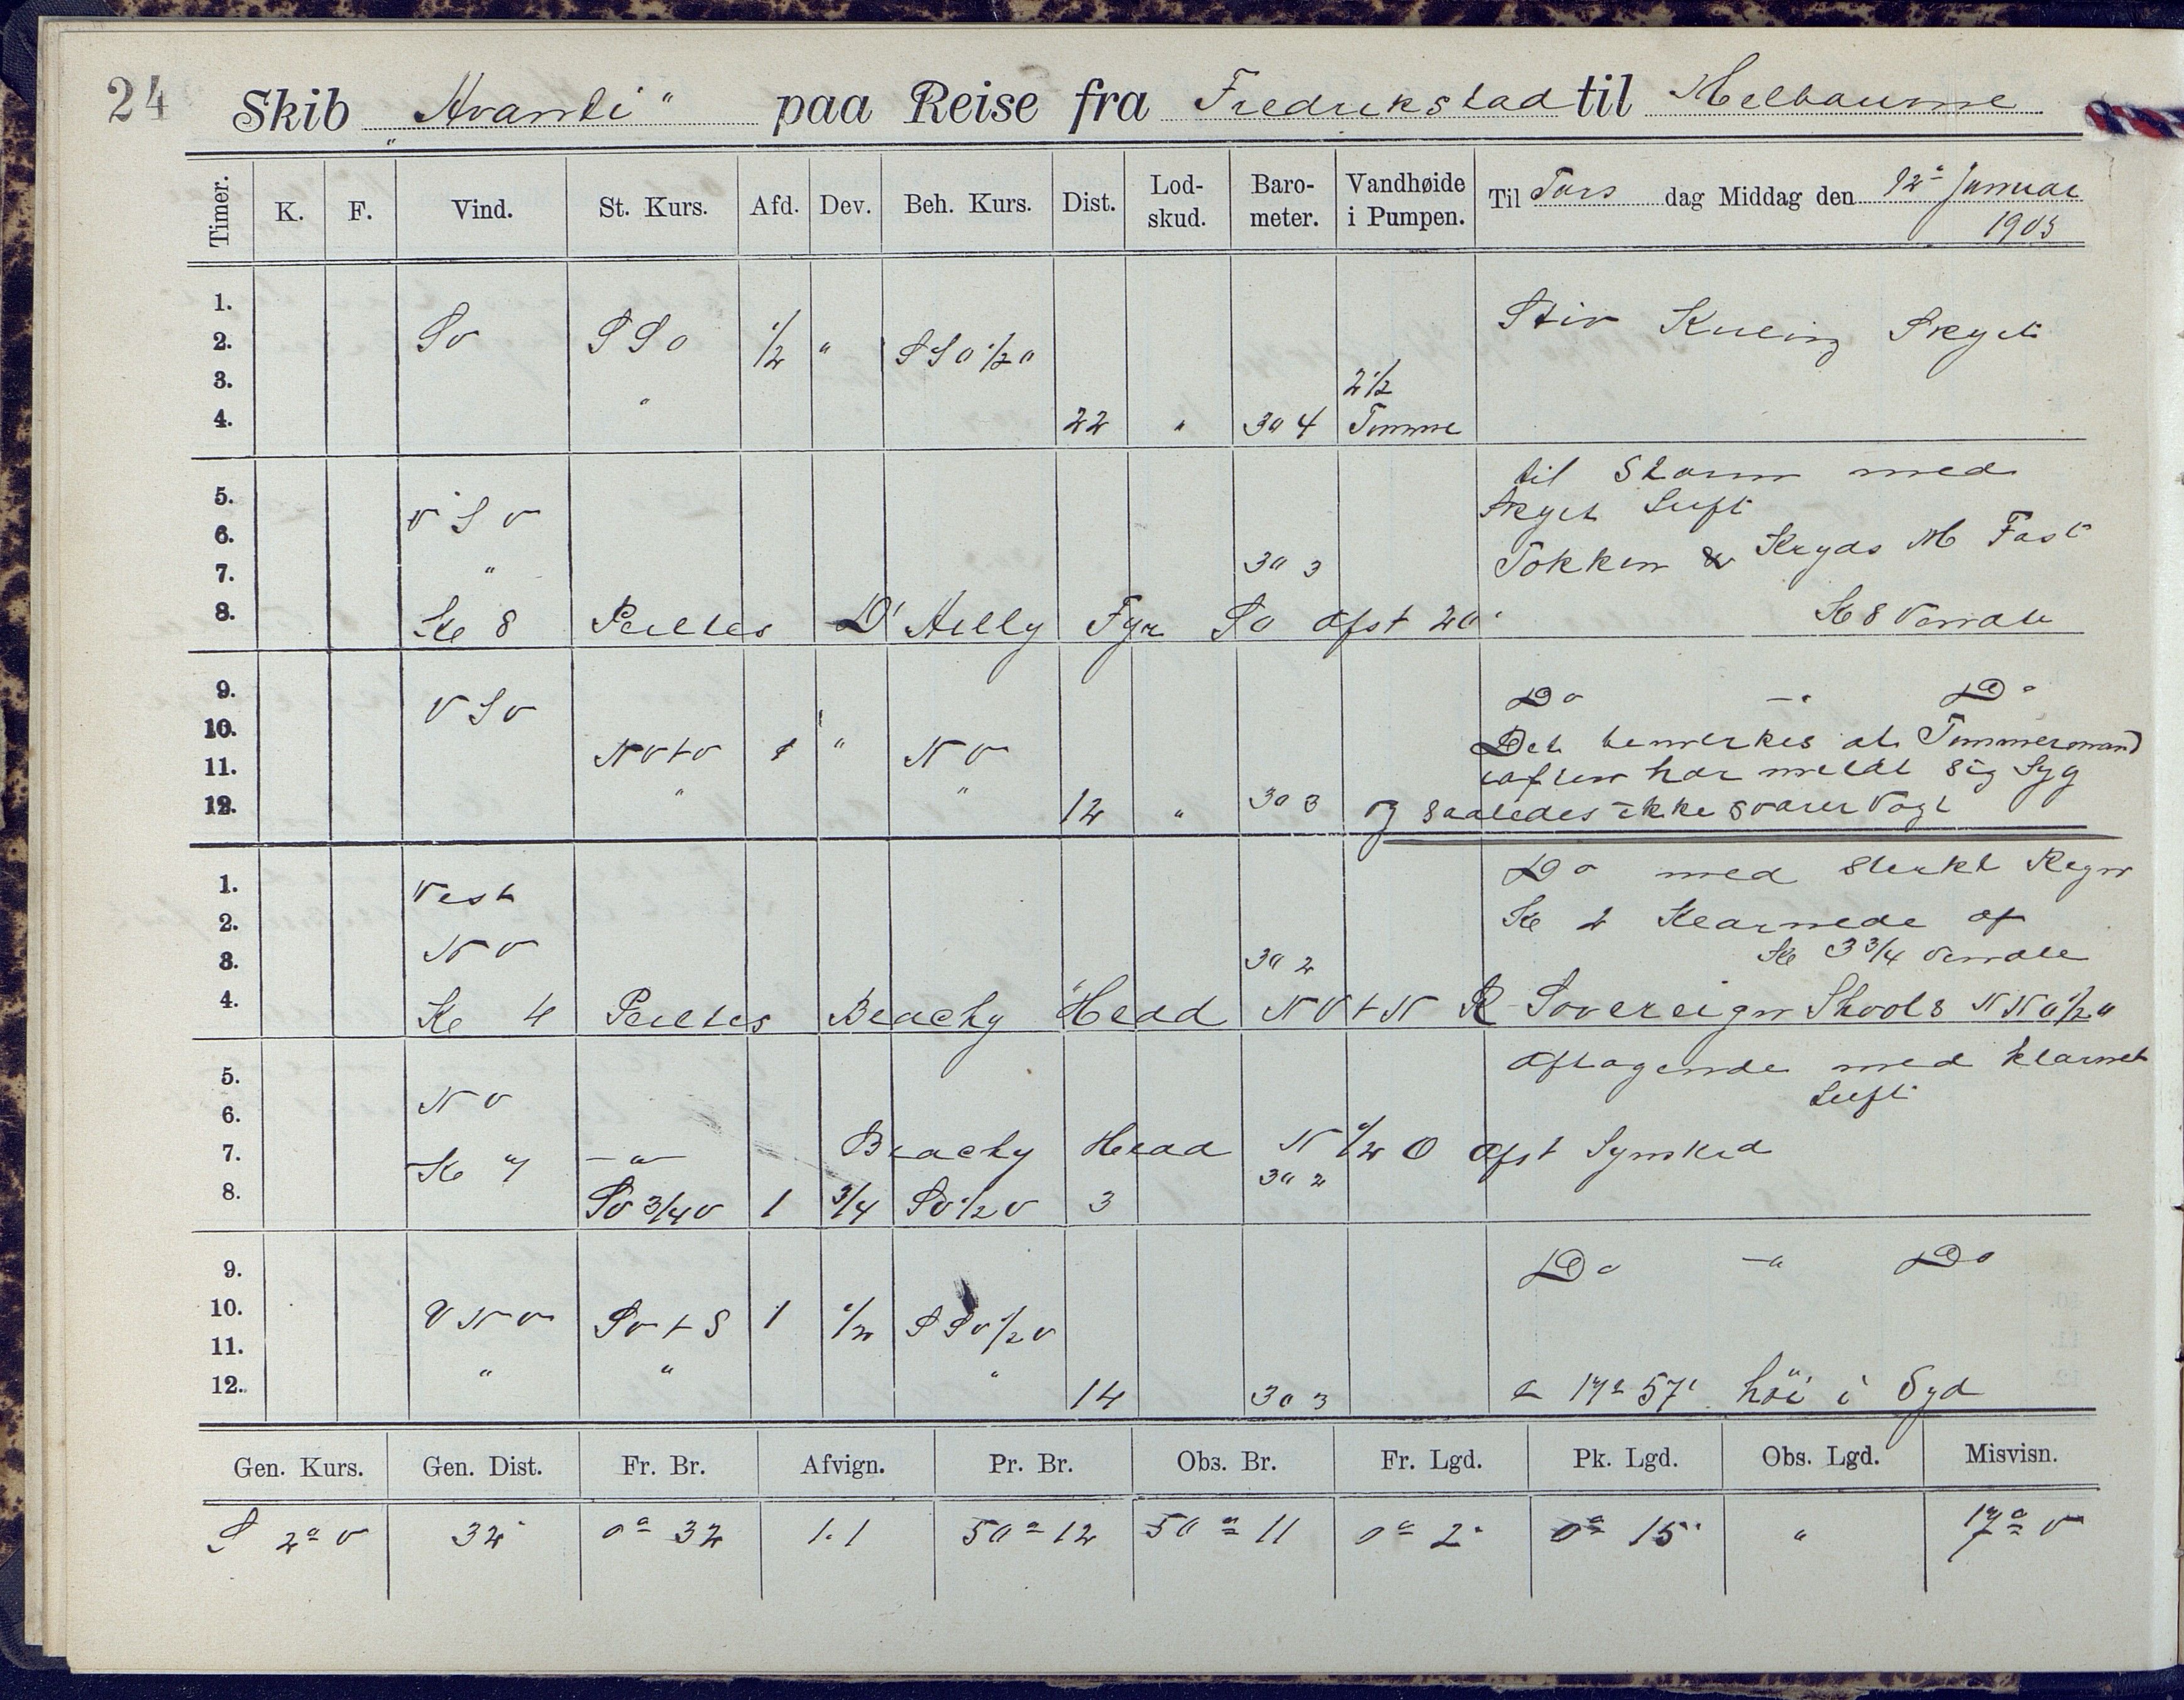 24 Skib „Avanti“ paa Reise fra Fredrikstad til Melbourne
Timer. K. F. Vind. St. Kurs. Afd. Dev. Beh. Kurs. Dist. Lod-skud. Baro-meter. Vandhøide i Pumpen. Til Tors dag Middag den 12te Januar 1905
1. Stiv Kuling Skyet
2. SV SSO 1/2 " SSO 1/2 O
3. " 2 1/2
4. 22 " 30 4 Tomme
til Storm med
5. VSV skyet Luft
6. Kryds M Fast
7. " 30 3 Tokken &
8. Kl 8 Peiltes D'Ailly Fyr SO afst 20' Kl 8 Vendte
9. VSV Do — " Do
10. NVtV 1 " NV Det bemerkes at Tømmermand
11. " " iaften har meldt sig Syg
12. 12 " 30 3 og saaledes ikke svarer Vagt
1. Vest Do med sterkt Regn
2. NV Kl 2 Klarnede af
3. 30 2 Kl 3 3/4 Vendte
4. Kl 4 Peiltes Beachy Head NVtN R Sovereign Shools NNO 1/2 O
5. NV Aftagende med klarnet
6. Luft
7. Kl 7 — " — Beachy Head N 1/2 O Afst Synskred
8. SV 3/4 V 1 3/4 SV 1/2 V 3 30 2
9. Do — " Do
10. VNV SVtS 1 1/2 SSV 1/2 V
11. " " "
12. 14 30 3 17° 57' høi i Syd
Gen. Kurs. Gen. Dist. Fr. Br. Afvign. Pr. Br. Obs. Br. Fr. Lgd. Pk. Lgd. Obs. Lgd. Misvisn.
S 2° V 32' 0° 32 1.1 50° 12 50° 11 0° 2' 0° 15' " 17° V